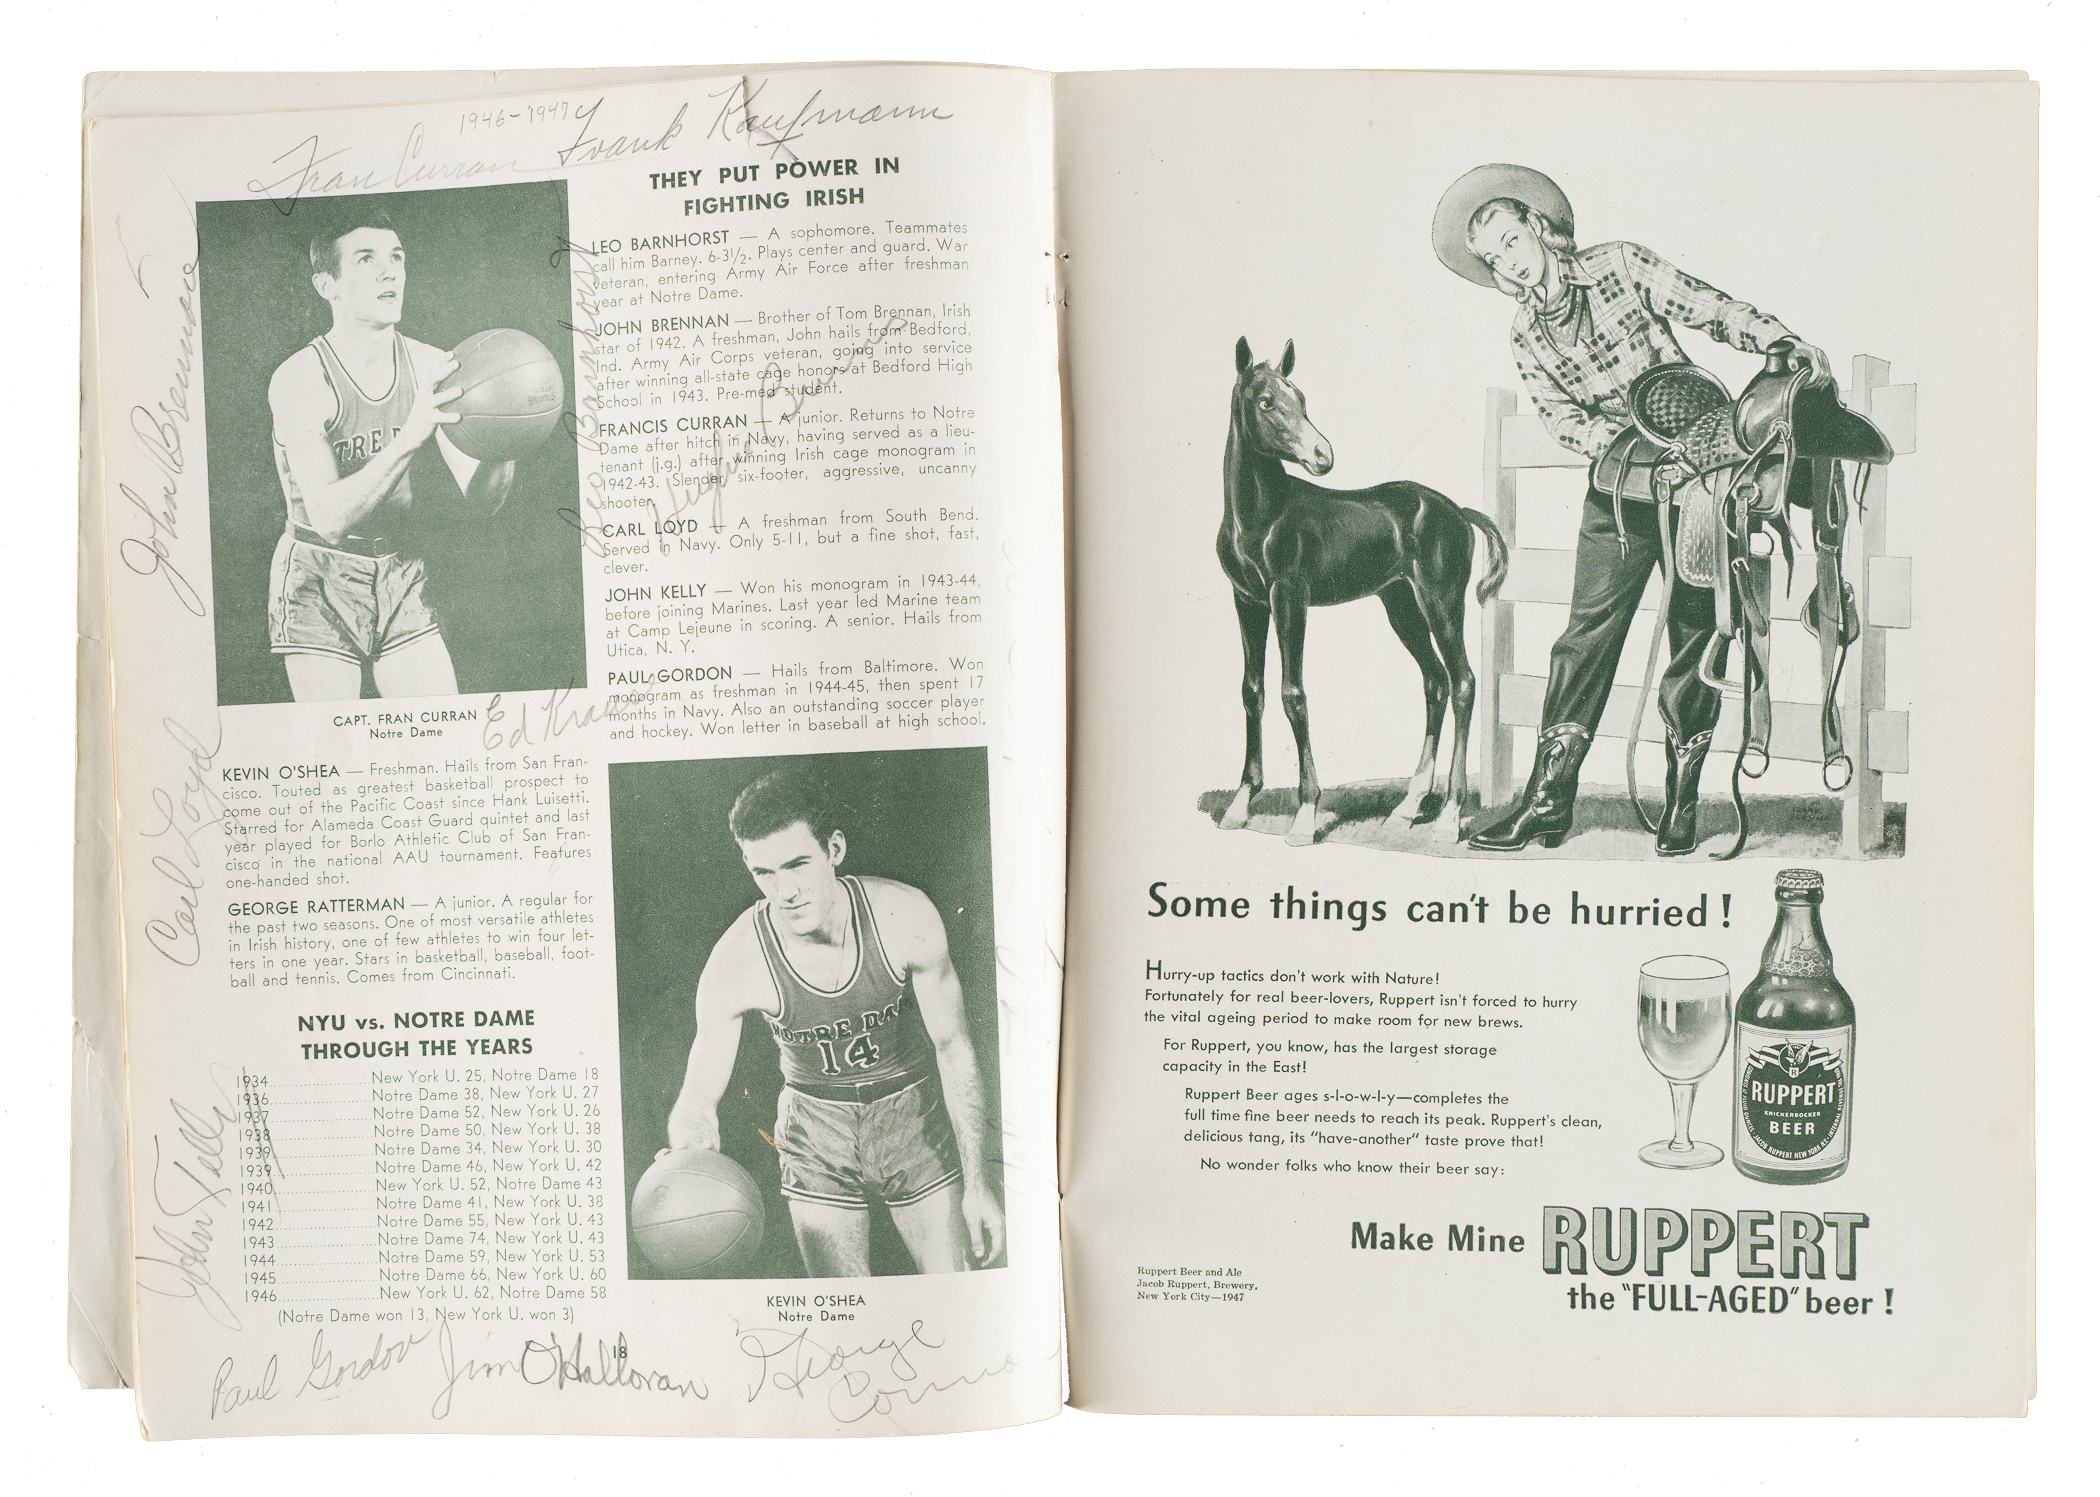 1946-1947
Fran Curran
Frank Kaufmann
John Brennan
Leo Barnhorst
Hughie Burns
Carl Loyd
Ed Kraus
John Kelly
Paul Gordon
Jim O'Halloran
George
CAPT. FRAN CURRAN
Notre Dame
KEVIN O'SHEA — Freshman. Hails from San Fran-
cisco. Touted as greatest basketball prospect to
come out of the Pacific Coast since Hank Luisetti.
Starred for Alameda Coast Guard quintet and last
year played for Borlo Athletic Club of San Fran-
cisco in the national AAU tournament. Features
one-handed shot.
GEORGE RATTERMAN — A junior. A regular for
the past two seasons. One of most versatile athletes
in Irish history, one of few athletes to win four let-
ters in one year. Stars in basketball, baseball, foot-
ball and tennis. Comes from Cincinnati.
NYU vs. NOTRE DAME
THROUGH THE YEARS
1934 New York U. 25, Notre Dame 18
1936 Notre Dame 38, New York U. 27
1937 Notre Dame 52, New York U. 26
1938 Notre Dame 50, New York U. 38
1939 Notre Dame 34, New York U. 30
1939 Notre Dame 46, New York U. 42
1940 New York U. 52, Notre Dame 43
1941 Notre Dame 41, New York U. 38
1942 Notre Dame 55, New York U. 43
1943 Notre Dame 74, New York U. 43
1944 Notre Dame 59, New York U. 53
1945 Notre Dame 66, New York U. 60
1946 New York U. 62, Notre Dame 58
(Notre Dame won 13, New York U. won 3)
THEY PUT POWER IN
FIGHTING IRISH
LEO BARNHORST — A sophomore. Teammates
call him Barney. 6-3½. Plays center and guard. War
veteran, entering Army Air Force after freshman
year at Notre Dame.
JOHN BRENNAN — Brother of Tom Brennan, Irish
star of 1942. A freshman, John hails from Bedford,
Ind. Army Air Corps veteran, going into service
after winning all-state cage honors at Bedford High
School in 1943. Pre-med student.
FRANCIS CURRAN — A junior. Returns to Notre
Dame after hitch in Navy, having served as a lieu-
tenant (j.g.) after winning Irish cage monogram in
1942-43. Slender, six-footer, aggressive, uncanny
shooter.
CARL LOYD — A freshman from South Bend.
Served in Navy. Only 5-11, but a fine shot, fast,
clever.
JOHN KELLY — Won his monogram in 1943-44,
before joining Marines. Last year led Marine team
at Camp Lejeune in scoring. A senior. Hails from
Utica, N. Y.
PAUL GORDON — Hails from Baltimore. Won
monogram as freshman in 1944-45, then spent 17
months in Navy. Also an outstanding soccer player
and hockey. Won letter in baseball at high school.
NOTRE DA
14
KEVIN O'SHEA
Notre Dame
18
Some things can't be hurried!
Hurry-up tactics don't work with Nature!
Fortunately for real beer-lovers, Ruppert isn't forced to hurry
the vital ageing period to make room for new brews.
For Ruppert, you know, has the largest storage
capacity in the East!
Ruppert Beer ages s-l-o-w-l-y—completes the
full time fine beer needs to reach its peak. Ruppert's clean,
delicious tang, its "have-another" taste prove that!
No wonder folks who know their beer say:
RUPPERT
KNICKERBOCKER
BEER
Make Mine RUPPERT
the "FULL-AGED" beer!
Ruppert Beer and Ale
Jacob Ruppert, Brewery,
New York City—1947